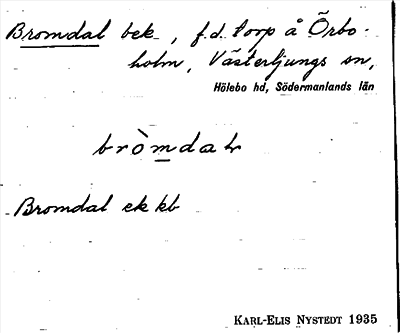 Bromdal bek., f.d. torp å Örbo-
holm, Västerljungs sn,
Hölebo hd, Södermanlands län
bròmdaḷ
Bromdal ek kb
KARL-ELIS NYSTEDT 1935